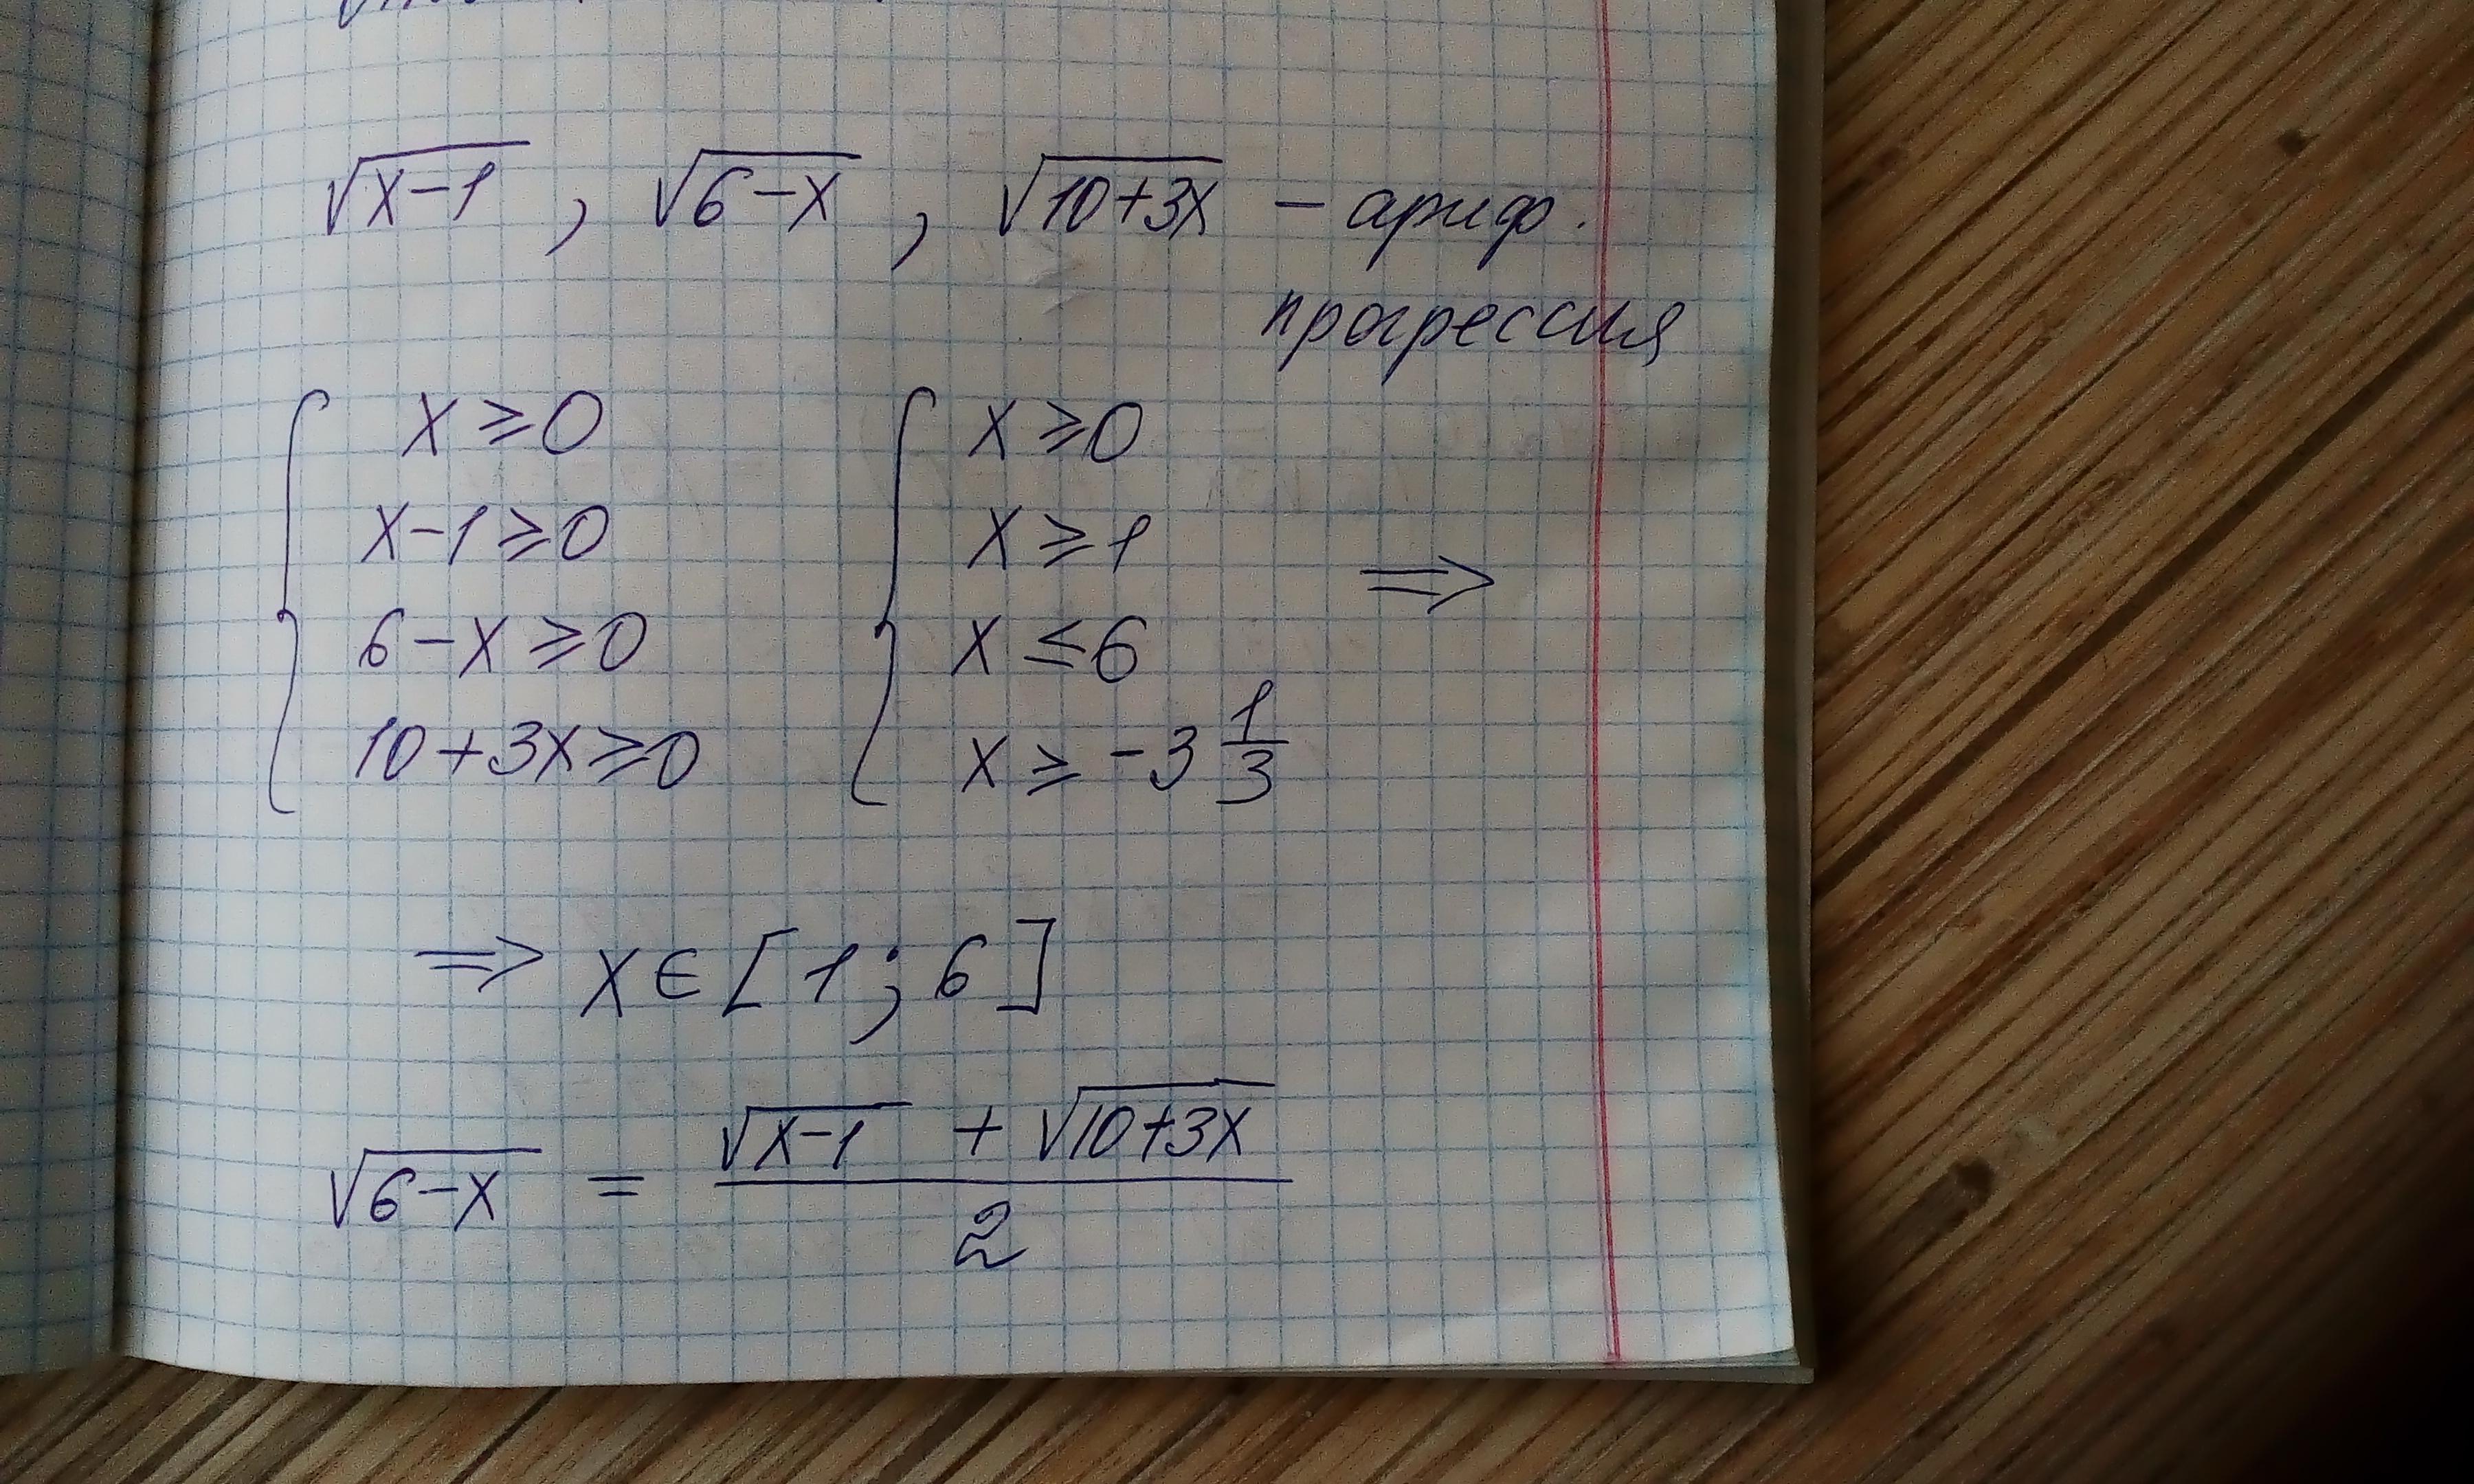 √(x-1) , √(6-x) , √(10+3x) – ариф.
прогрессия
{ x ⩾ 0 { x ⩾ 0
x-1 ⩾ 0 x ⩾ 1 ⇒
6-x ⩾ 0 x ≤ 6
10+3x ⩾ 0 x ⩾ -3 1/3
⇒ x ∈ [1; 6]
√(6-x) = (√(x-1) + √(10+3x))/2